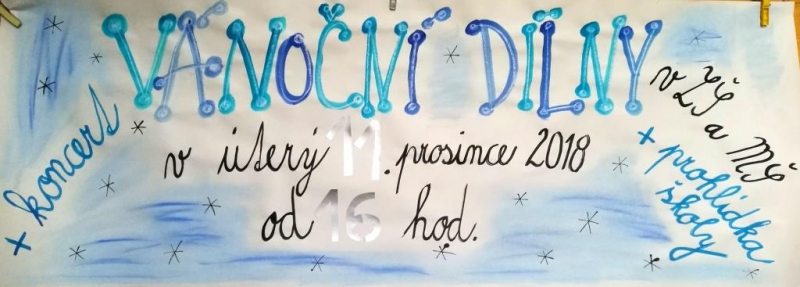 VÁNOČNÍ DÍLNY
v ZŠ a MŠ
v úterý 11. prosince 2018
od 16 hod.
+ koncert
+ prohlídka
školy